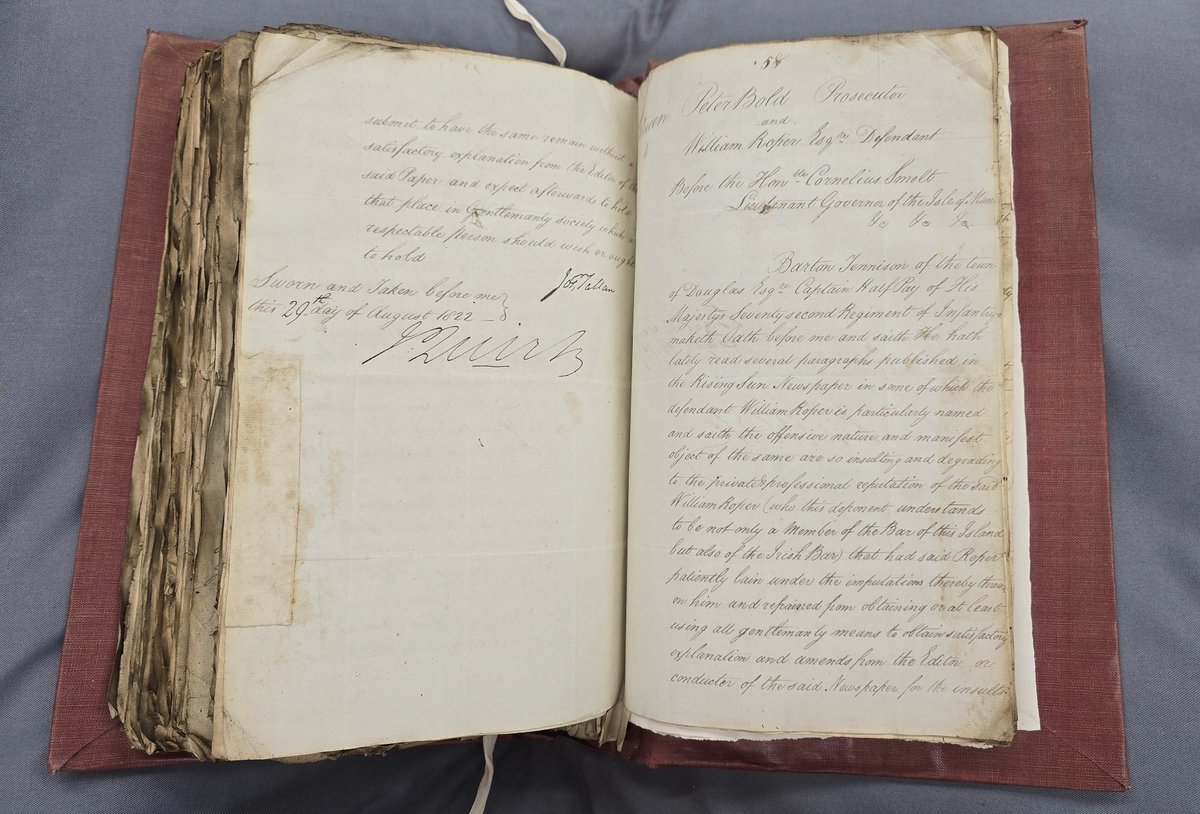 submit to have the same remain without a
satisfactory explanation from the Editor of the
said Paper and expect afterwards to hold
that place in Gentlemanly society which a
respectable person should wish or ought
to hold
Sworn and Taken before me
this 29th day of August 1822
58
Between Peter Bold Prosecutor
and
William Roper Esqre Defendant
Before the Honble Cornelius Smelt
Lieutenant Governor of the Isle of Man
&c &c &c
Barton Tennison of the town
of Douglas Esqre Captain Half Pay of His
Majestys Seventy second Regiment of Infantry
maketh Oath before me and saith He hath
lately read several paragraphs published in
the Rising Sun Newspaper in some of which the
defendant William Roper is particularly named
and saith the offensive nature and manifest
object of the same are so insulting and degrading
to the private & professional reputation of the said
William Roper (who this deponent understands
to be not only a Member of the Bar of this Island
but also of the Irish Bar) that had said Roper
patiently lain under the imputations thereby thrown
on him and refrained from obtaining or at least
using all gentlemanly means to obtain satisfactory
explanation and amends from the Editor or
conductor of the said Newspaper for the insults